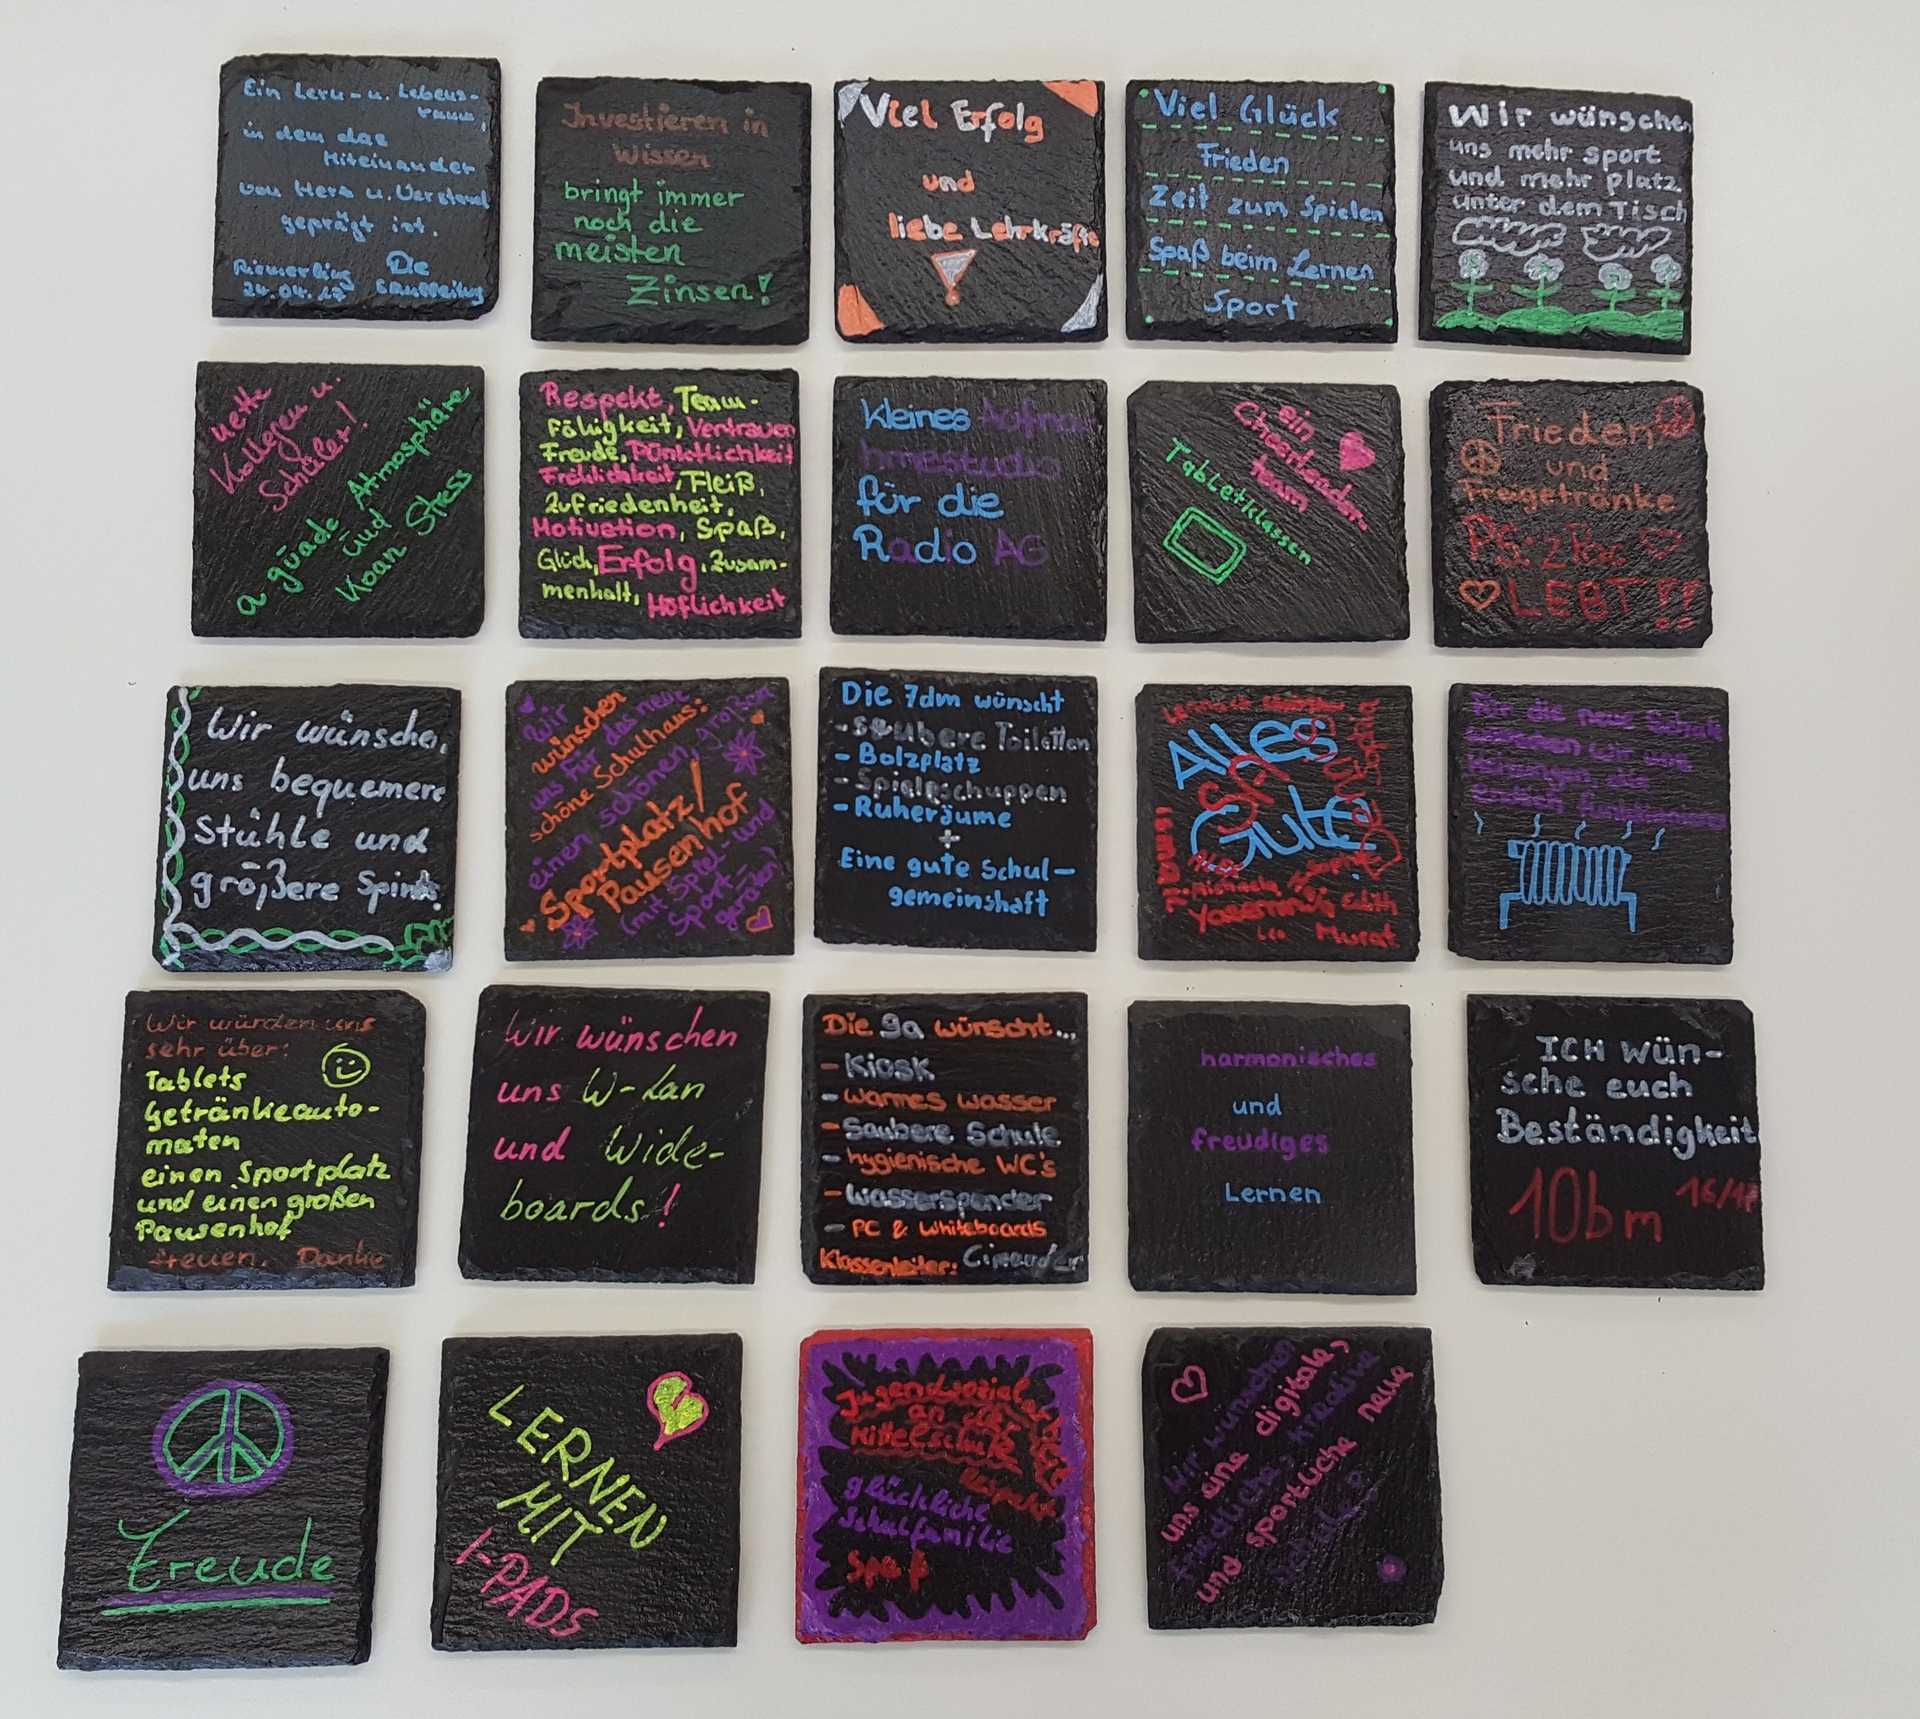 Ein Lern- u. Lebens-
raum,
in dem das
Miteinander
von Herz u. Verstand
geprägt ist.
Riemerling Die
24.04.17 Schulleitung
Investieren in
Wissen
bringt immer
noch die
meisten
Zinsen!
Viel Erfolg
und
liebe Lehrkräfte
Viel Glück
Frieden
Zeit zum Spielen
Spaß beim Lernen
Sport
Wir wünschen
uns mehr sport
und mehr platz
unter dem Tisch
nette
Kollegen u.
Schüler!
a guade Atmosphäre
und
koan Stress
Respekt, Team-
fähigkeit, Vertrauen
Freude, Pünktlichkeit
Fröhlichkeit, Fleiß,
Zufriedenheit,
Motivation, Spaß,
Glück, Erfolg, Zusam-
menhalt, Höflichkeit
kleines Aufna
hmestudio
für die
Radio AG
ein
Cheerleader-
team
Tabletklassen
Frieden
und
Freigetränke
PS: 2Pac
LEBT!!
Wir wünschen
uns bequemere
Stühle und
größere Spinds.
Wir
wünschen
uns für das neue
schöne Schulhaus:
einen schönen, großen
Sportplatz/
Pausenhof
(mit Spiel- und
Sport-
geräten)
Die 7dm wünscht
- saubere Toiletten
- Bolzplatz
- Spieleschuppen
- Ruheräume
+
Eine gute Schul-
gemeinschaft
Alles
Gute
Michaela
Yasemin Edith
Leo Murat
Für die neue Schule
wünschen wir uns
Heizungen die
endlich funktionieren
Wir würden uns
sehr über:
Tablets
Getränkeauto-
maten
einen Sportplatz
und einen großen
Pausenhof
freuen. Danke
Wir wünschen
uns W-Lan
und Wide-
boards!
Die 9a wünscht...
- Kiosk
- warmes wasser
- Saubere Schule
- hygienische WC's
- Wasserspender
- PC & Whiteboards
Klassenleiter:
harmonisches
und
freudiges
Lernen
ICH wün-
sche euch
Beständigkeit
10bm 16/17
Freude
LERNEN
MIT
I-PADS
Jugendsozialarbeit
an der
Mittelschule
Respekt
glückliche
Schulfamilie
Spaß
Wir wünschen
uns eine digitale,
friedliche, kreative
und sportliche neue
Schule!